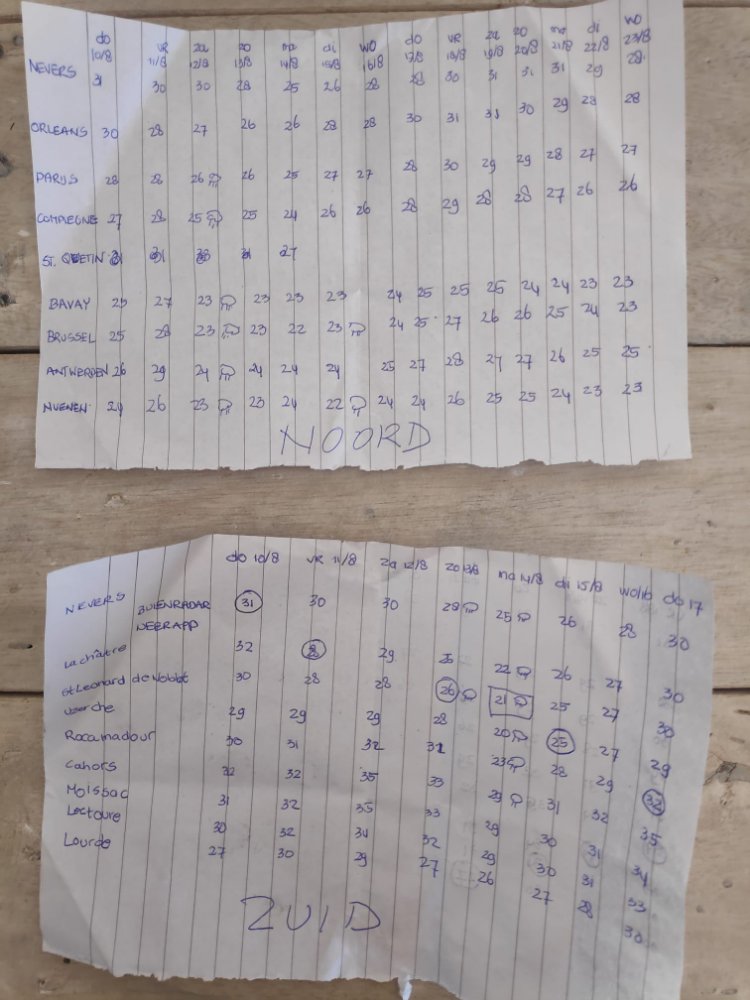 do vr za zo ma di wo do vr za zo ma di wo
10/8 11/8 12/8 13/8 14/8 15/8 16/8 17/8 18/8 19/8 20/8 21/8 22/8 23/8
NEVERS 31 30 30 28 25 26 28 28 30 31 31 31 29 28
ORLEANS 30 28 27 26 26 28 28 30 31 31 30 29 28 28
PARIJS 28 28 26 26 25 27 27 28 30 29 29 28 27 27
COMPIEGNE 27 28 25 25 24 26 26 28 29 28 28 27 26 26
ST. QUETIN 31 27
BAVAY 25 27 23 23 23 23 24 25 25 25 24 24 23 23
BRUSSEL 25 28 23 23 22 23 24 25 27 26 26 25 24 23
ANTWERPEN 26 29 24 24 24 24 25 27 28 27 27 26 25 25
NUENEN 24 26 23 23 24 22 24 24 26 25 25 24 23 23
NOORD
do 10/8 vr 11/8 za 12/8 zo 13/8 ma 14/8 di 15/8 wo/16 do 17
NEVERS BUIENRADAR 31 30 30 28 25 26 28 30
NEERAPP
La châtre 32 28 29 26 22 26 27 30
St Leonard de Noblat 30 28 28 26 21 25 27 30
Uzerche 29 29 29 28 20 25 27 29
Rocamadour 30 31 32 31 23 28 29 32
Cahors 32 32 35 33 29 31 32 35
Moissac 31 32 35 33 29 30 31 34
Lectoure 30 32 34 32 29 30 31 33
Lourde 27 30 29 27 26 27 28 30
ZUID